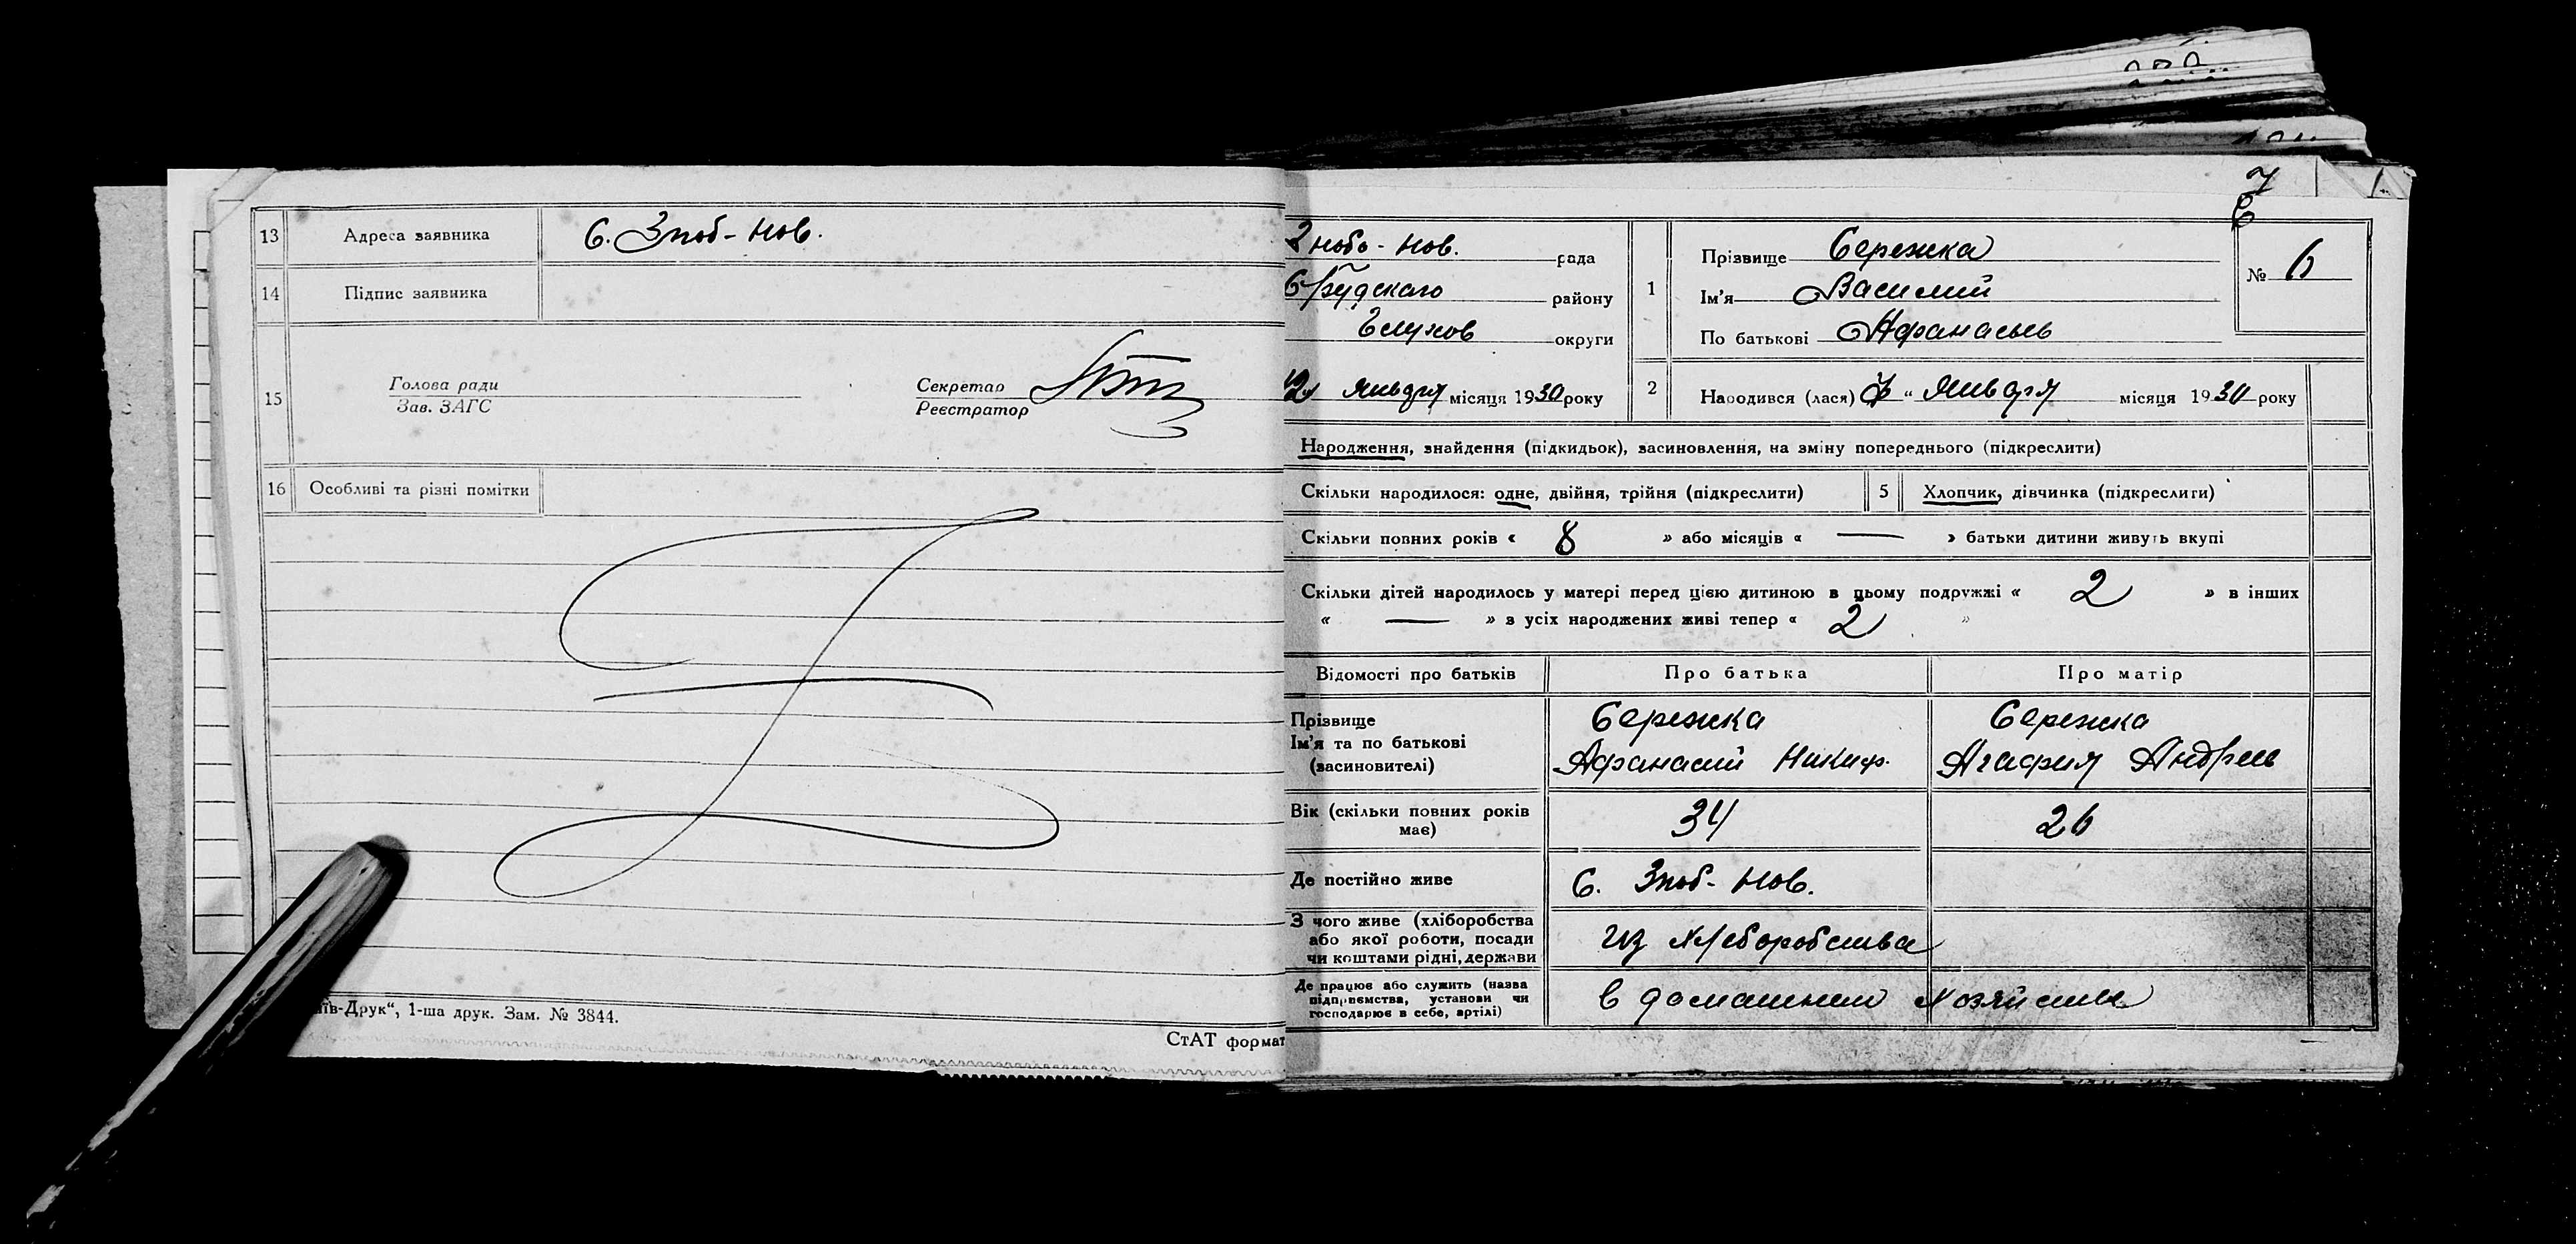 13 Адреса заявника С. Зноб-Нов.
14 Підпис заявника
15 Голова ради
Зав. ЗАГС
Секретар
Реєстратор
16 Особливі та різні помітки
їв-Друк“, 1-ша друк. Зам. № 3844.
СтАТ формат
7
6
1
Знобо-Нов. рада
С/Будскаго району
Глухов округи
12 января місяця 1930 року
1 Прізвище Сережка
Ім’я Василий
По батькові Афанасьев
№ 6
2 Народився (лася) 7 “ января місяця 1930 року
Народження, знайдення (підкидьок), засиновлення, на зміну попереднього (підкреслити)
Скільки народилося: одне, двійня, трійня (підкреслити) 5 Хлопчик, дівчинка (підкреслити)
Скільки повних років « 8 » або місяців « — » батьки дитини живуть вкупі
Скільки дітей народилось у матері перед цією дитиною в цьому подружжі « 2 » в інших
« — » з усіх народжених живі тепер « 2 »
Відомості про батьків Про батька Про матір
Прізвище Сережка Сережка
Ім’я та по батькові Афанасий Никиф. Агафия Андреев
(засиновителі)
Вік (скільки повних років 34 26
має)
Де постійно живе С. Зноб-Нов.
З чого живе (хліборобства
або якої роботи, посади из хлеборобства
чи коштами рідні, держави
Де працює або служить (назва
підприємства, установи чи в домашнем хозяйстве
господарює в себе, артілі)